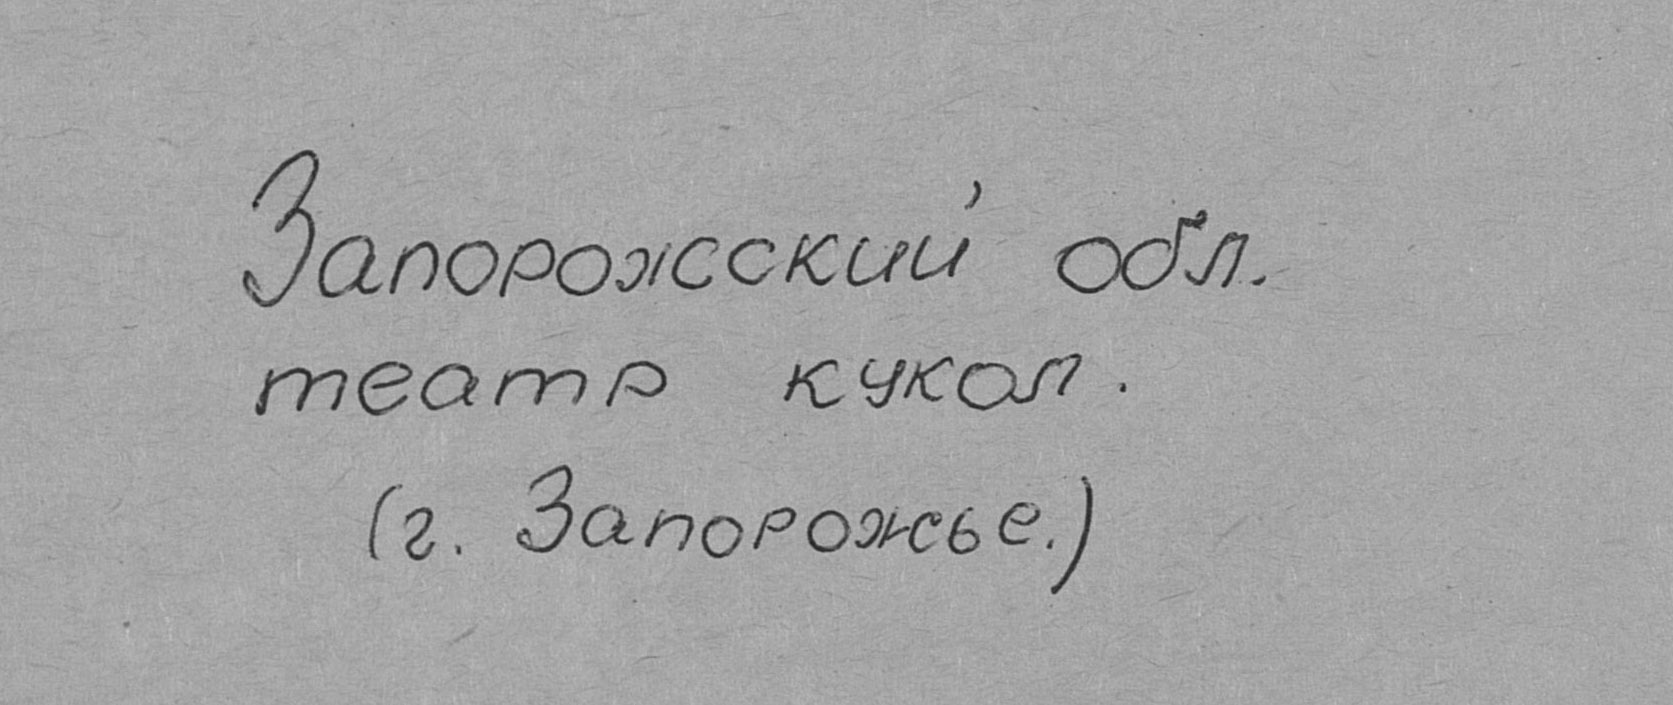 Запорожский обл.
театр кукол.
(г. Запорожье.)